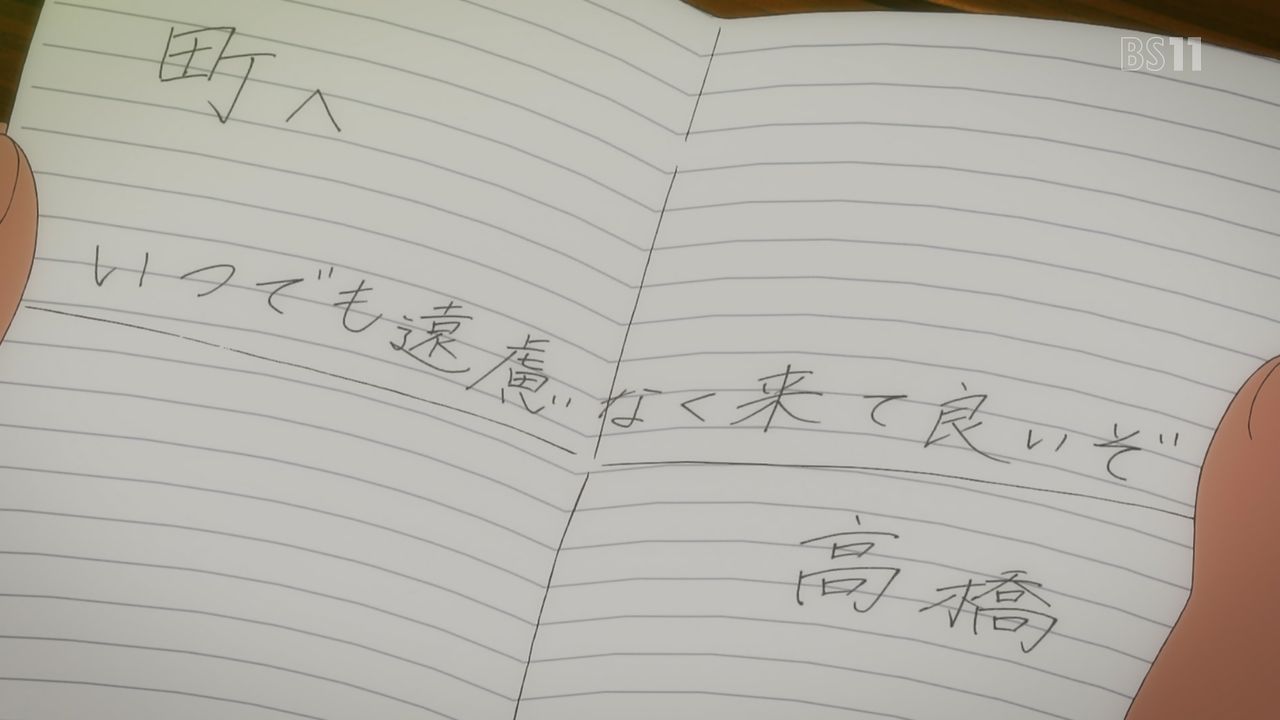 BS11
町へ
いつでも遠慮なく来て良いぞ
高橋